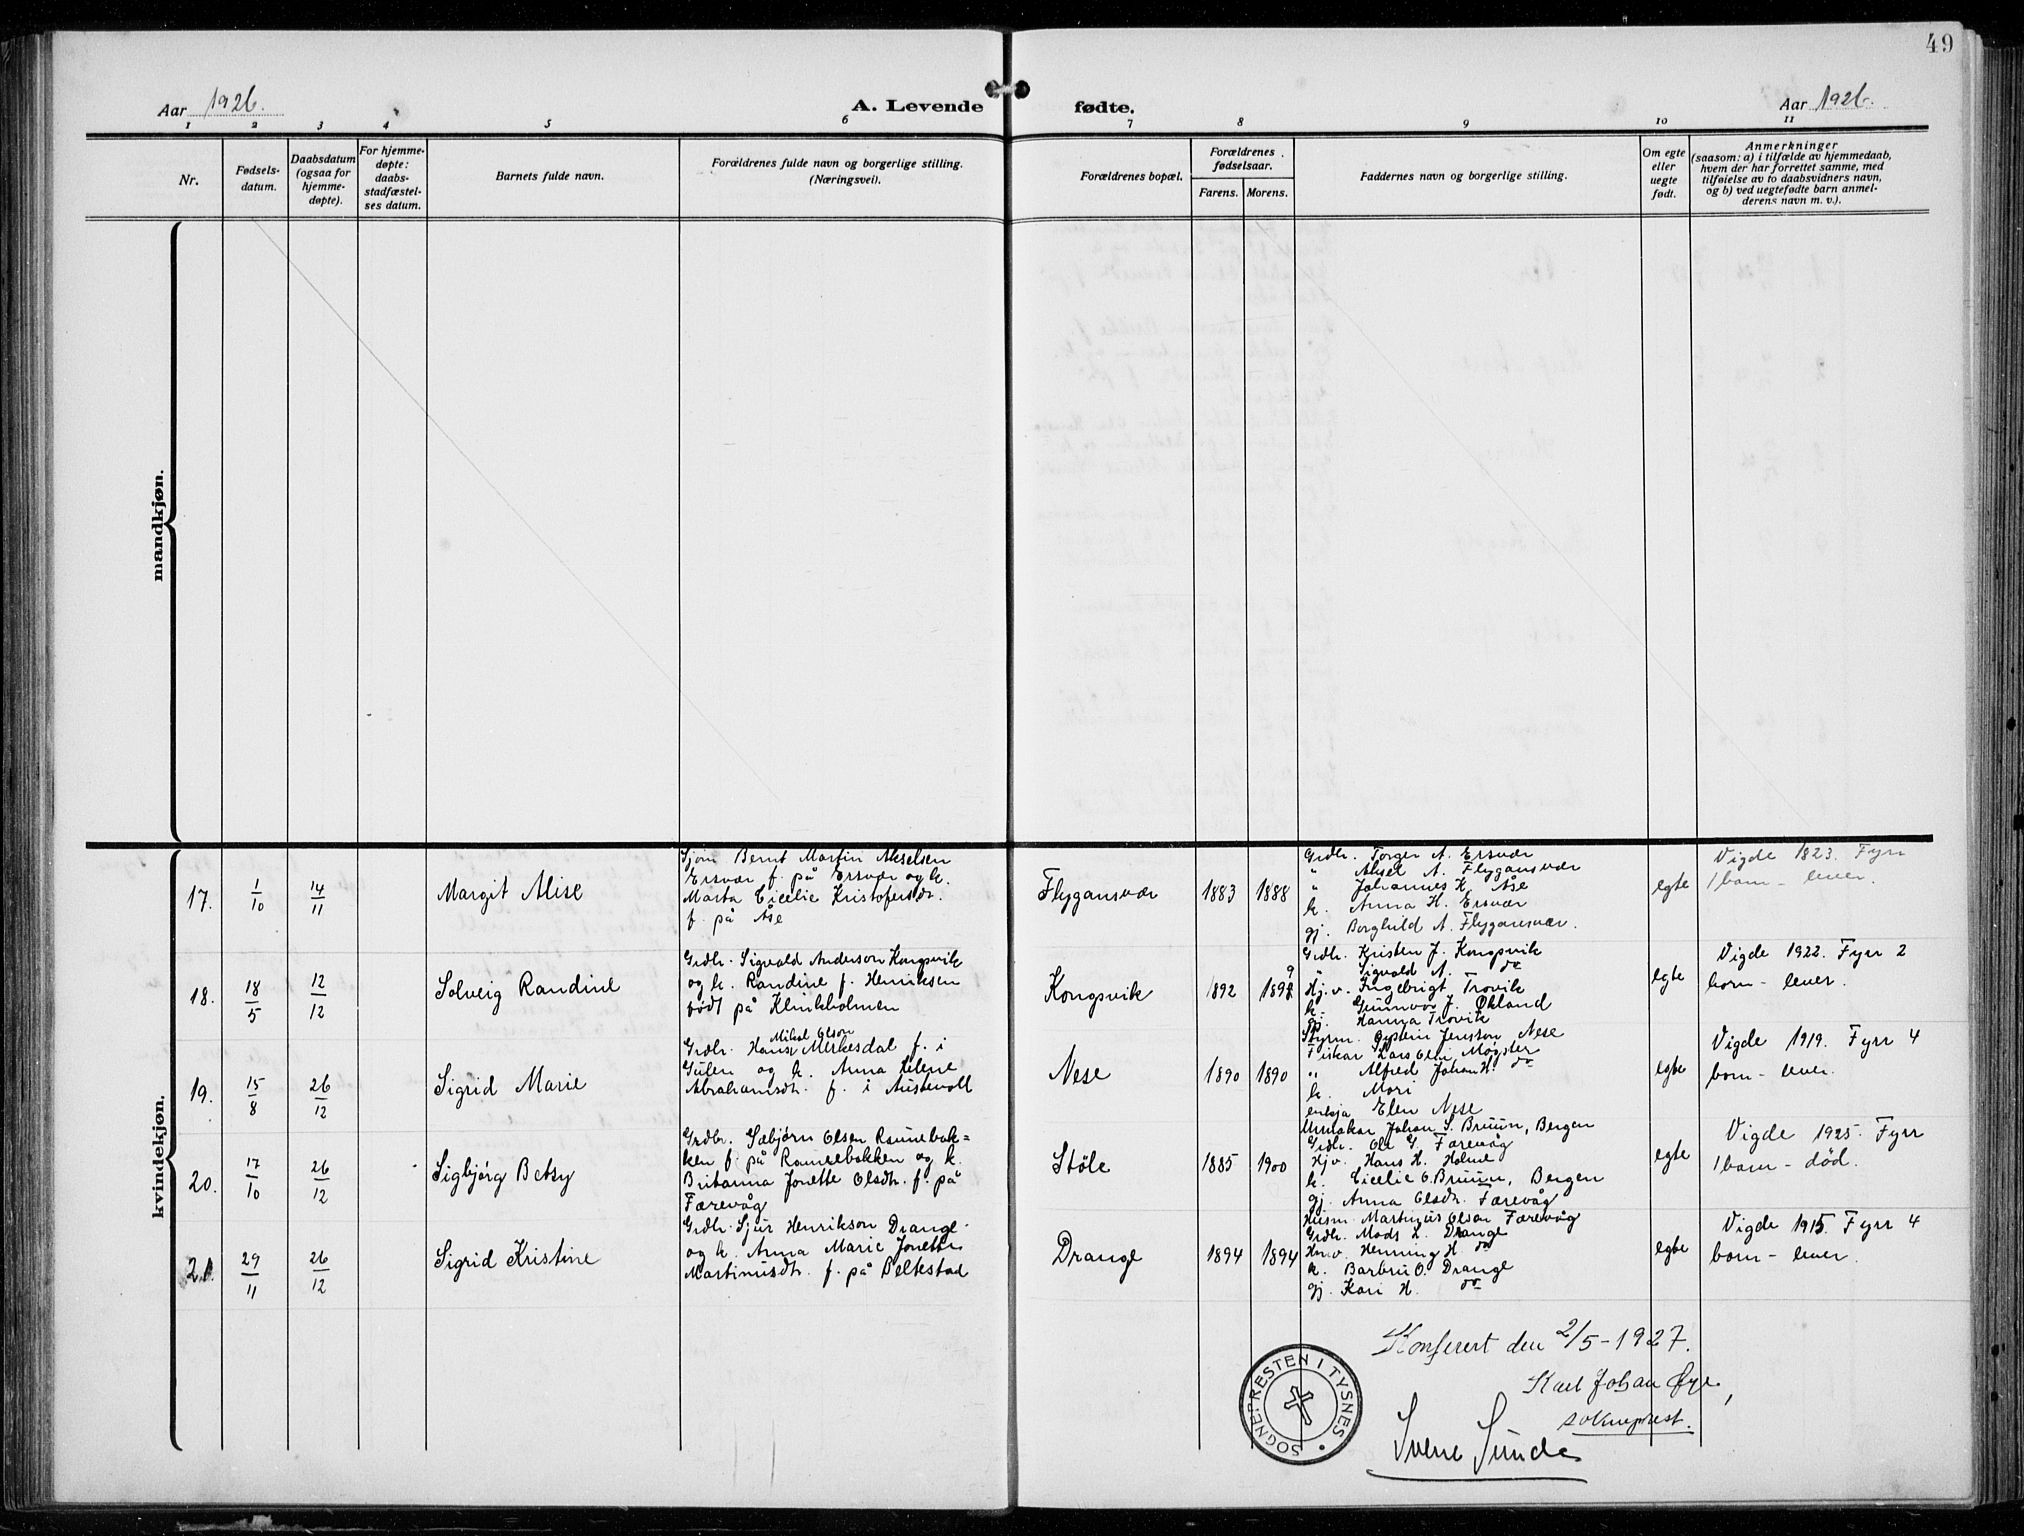 49
Aar 1926.
A. Levende fødte.
Aar 1926.
1 2 3 4 5 6 7 8 9 10 11
Nr.
Fødsels-
datum.
Daabsdatum
(ogsaa for
hjemme-
døpte).
For hjemme-
døpte:
daabs-
stadfæstel-
ses datum.
Barnets fulde navn.
Forældrenes fulde navn og borgerlige stilling.
(Næringsvei).
Forældrenes bopæl.
Forældrenes
fødselsaar.
Farens. Morens.
Faddernes navn og borgerlige stilling.
Om egte
eller
uegte
født.
Anmerkninger
(saasom: a) i tilfælde av hjemmedaab,
hvem der har forrettet samme, med
tilføielse av to daabsvidners navn,
og b) ved uegtefødte barn anmel-
derens navn m. v.).
mandkjøn.
kvindekjøn.
17.
1/10
14/11
Margit Alise
Sjøm Bernt Martin Akselsen
Ersvær f. på Ersvær og k.
Marta Cicelie Kristofersdr.
f. på Åse
Flygansvær
1883 1888
Grdbr. Torger A. Ersvær
" Aksel A. Flygansvær
" Johannes K. Åse
k. Anna H. Ersvær
gj. Borghild A. Flygansvær.
egte
Vigde 1823. Fyrr
1 barn - lever.
18.
18/5
12/12
Solveig Randine
Grdbr. Sigvald Anderson Kongsvik
og k. Randine f. Henriksen
født på Klinkholmen
Kongsvik
1892 1899
Grdbr. Kristen J. Kongsvik
" Sigvald A. do
Hj.v. Ingebrigt Trovik
k. Gunnvor J. Økland
gj. Hanna Trovik
egte
Vigde 1922. Fyrr 2
born - lever.
19.
15/8
26/12
Sigrid Marie
Mikal Olson
Grdbr. Hans Merkesdal f. i
Gulen og k. Anna Helene
Abrahamsdr. f. i Austevoll
Nese
1890 1890
Styrm. Øystein Jensson Nese
Fiskar Lars Olai Møgster
" Alfred Johan H. do
k. Mari
enkja Elen Nese
egte
Vigde 1919. Fyrr 4
born - lever.
20.
17/10
26/12
Sigbjørg Betsy
Grdbr. Sæbjørn Olsen Raunebak=
ken f. på Raunebakken og k.
Britanna Jonette Olsdtr. f. på
Færevåg
Støle
1885 1900
Urmakar Johan S. Bruun, Bergen
Grdbr. Ole G. Færevåg
Hjv. Hans H. Holme
k. Cicelie O. Bruun, Bergen
gj. Anna Olsdtr. Færevåg
egte
Vigde 1925. Fyrr
1 barn - død.
21.
29/11
26/12
Sigrid Kristine
Grdbr. Sjur Henrikson Drange
og k. Anna Marie Jonette
Martinusdtr. f. på Beltestad
Drange
1894 1894
Husm. Martinus Olson Færevåg
Grdbr. Mads L. Drange
Hn.v. Henning H. do
k. Barbru O. Drange
gj. Kari H. do
egte
Vigde 1915. Fyrr 4
born - lever.
Konferert den 2/5-1927.
Karl Johan Øye,
sokneprest.
Svene Sunde
SOGNEPRESTEN I TYSNES